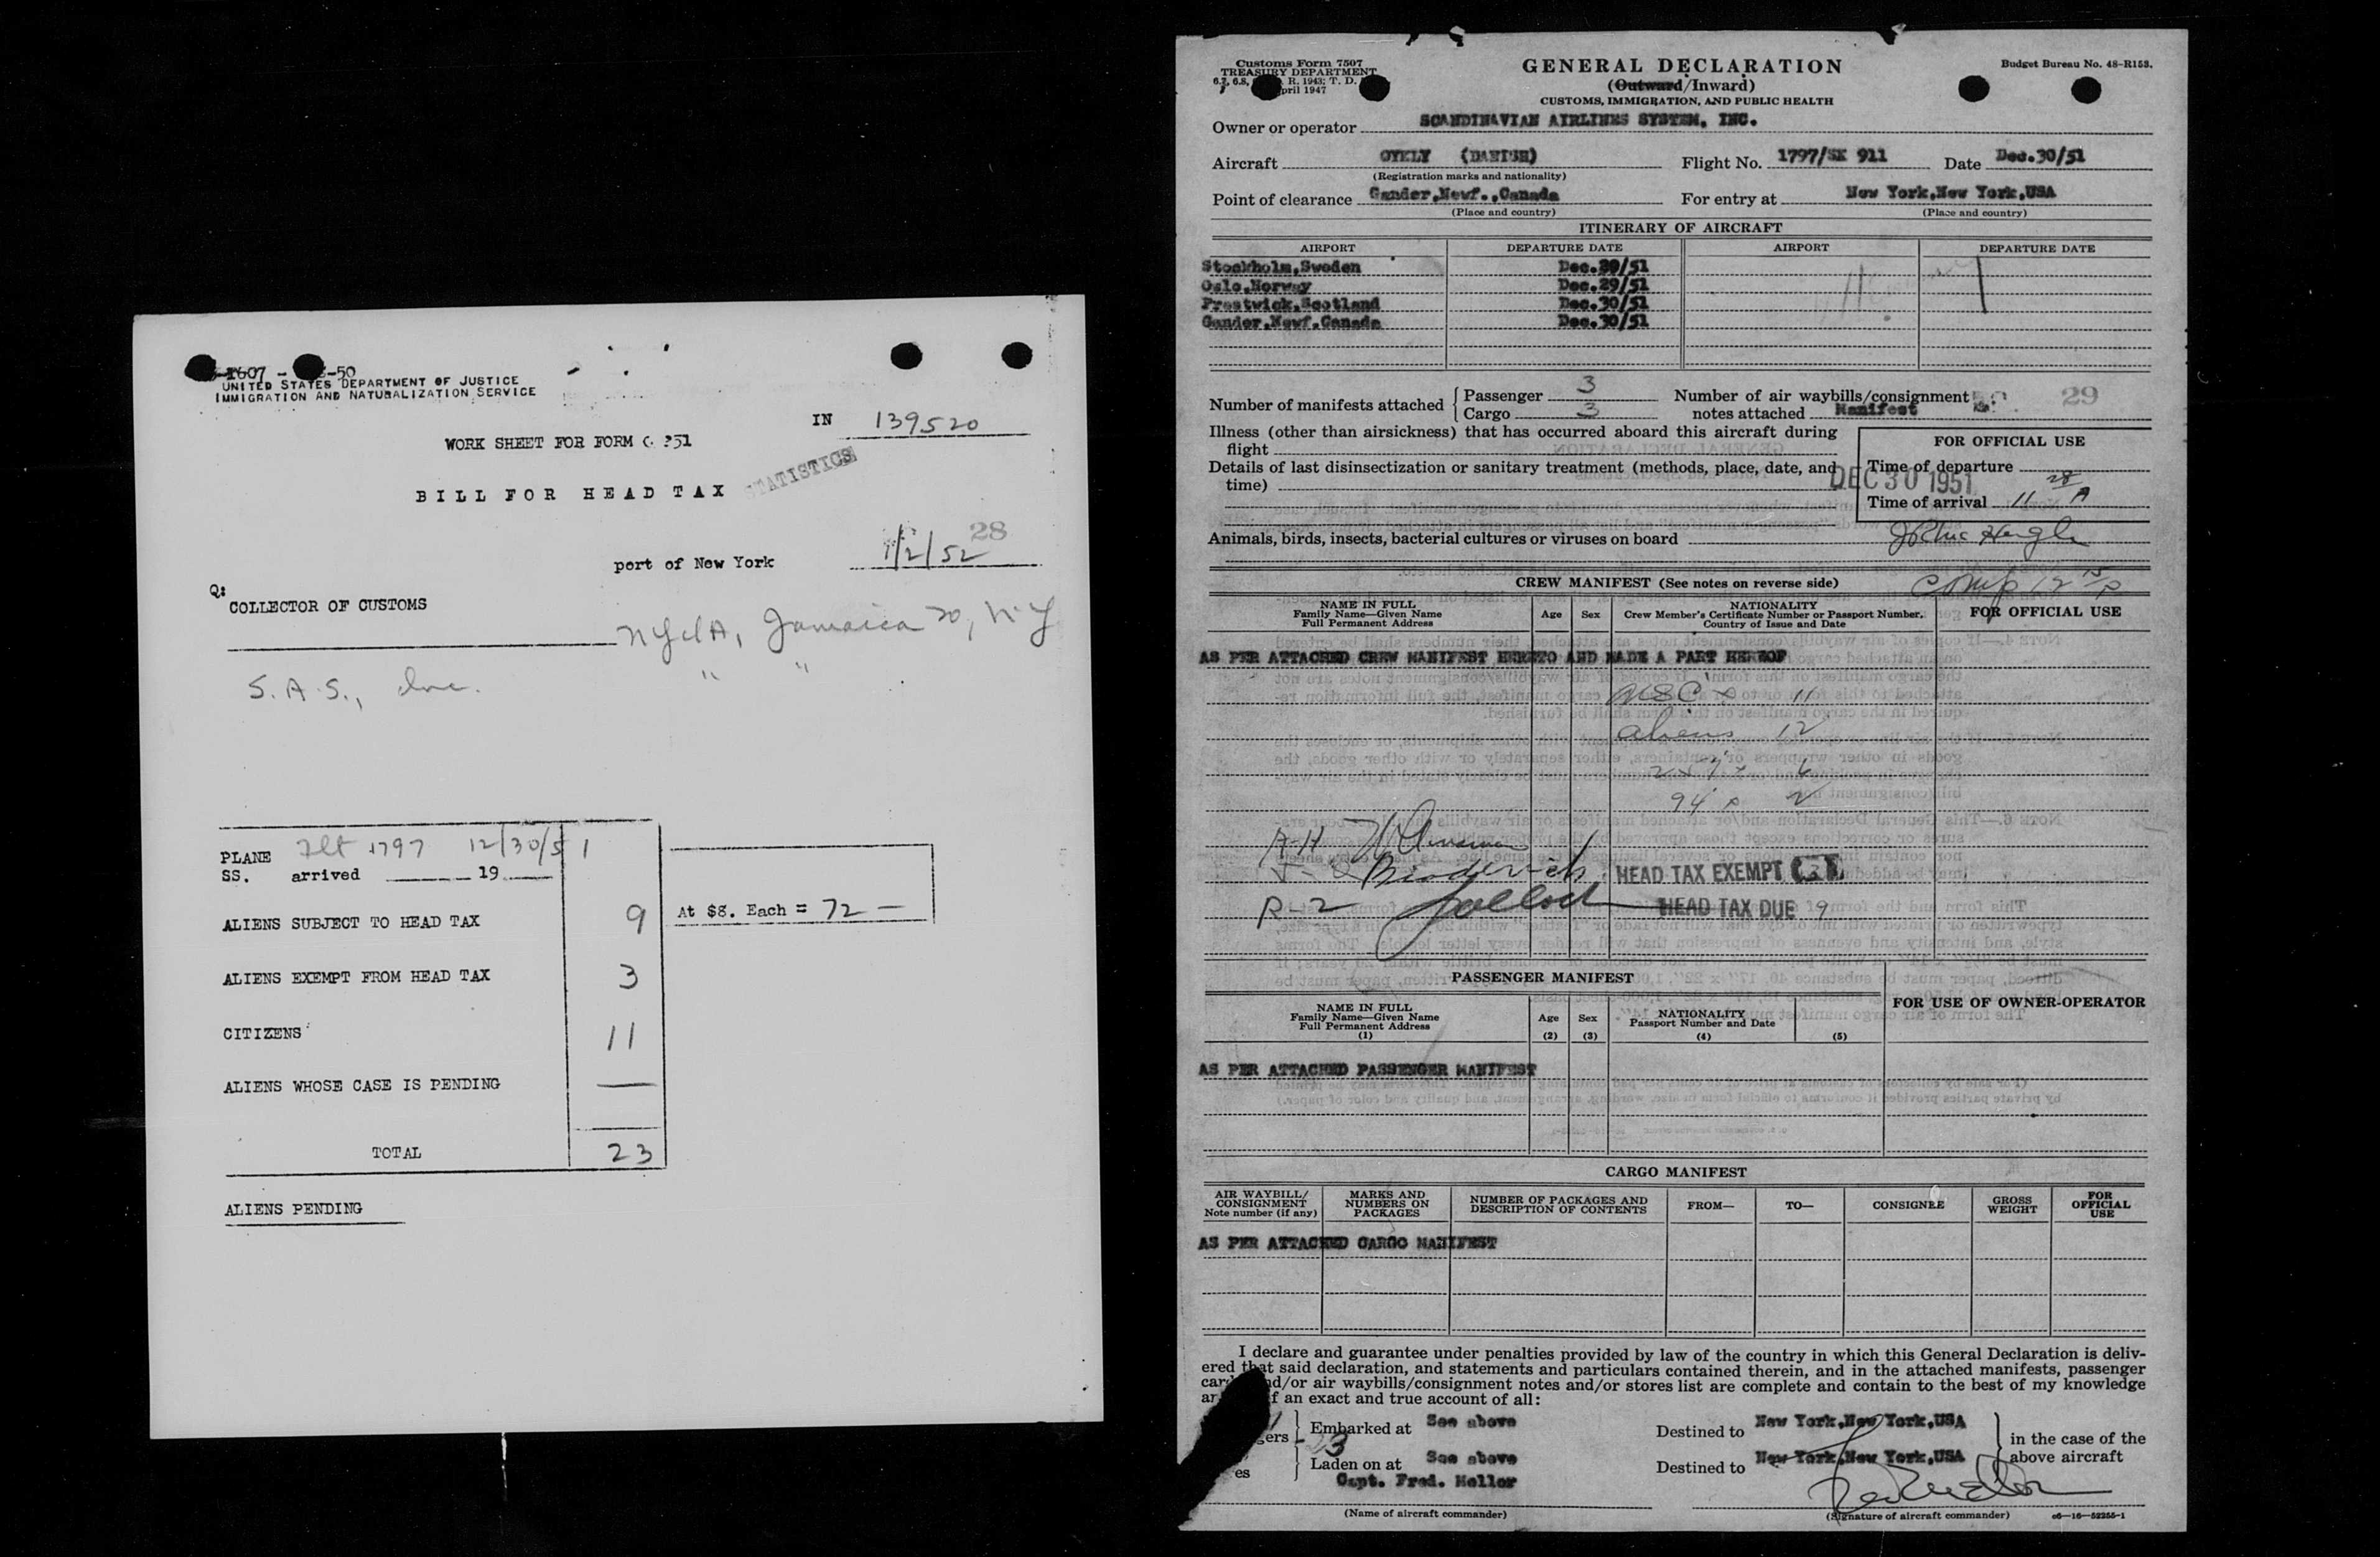 -1607 - -50
UNITED STATES DEPARTMENT OF JUSTICE
IMMIGRATION AND NATURALIZATION SERVICE
IN 139520
WORK SHEET FOR FORM 51
STATISTICS
BILL FOR HEAD TAX
28
port of New York 1/2/52
Q:
COLLECTOR OF CUSTOMS
Jamaica 20, NY
S.A.S., Inc. " "
PLANE Flt 1797 12/30/51
SS. arrived 19
ALIENS SUBJECT TO HEAD TAX 9
At $8. Each = 72 —
ALIENS EXEMPT FROM HEAD TAX 3
CITIZENS 11
ALIENS WHOSE CASE IS PENDING —
TOTAL 23
ALIENS PENDING
Customs Form 7507
TREASURY DEPARTMENT
6.7, 6.8, R. 1943; T. D.
pril 1947
Budget Bureau No. 48-R153.
GENERAL DECLARATION
(Outward/Inward)
CUSTOMS, IMMIGRATION, AND PUBLIC HEALTH
Owner or operator SCANDINAVIAN AIRLINES SYSTEM, INC.
Aircraft (DANISH) Flight No. 1797/SK 911 Date Dec.30/51
(Registration marks and nationality)
Point of clearance Gander,Newf.,Canada For entry at New York,New York,USA
(Place and country) (Place and country)
ITINERARY OF AIRCRAFT
AIRPORT DEPARTURE DATE AIRPORT DEPARTURE DATE
Stockholm,Sweden Dec./51
Oslo,Norway Dec.29/51
Prestwick,Scotland Dec.30/51
Gander,Newf.Canada Dec.30/51
Number of manifests attached Passenger 3 Cargo 3
Number of air waybills/consignment
notes attached Manifest
29
Illness (other than airsickness) that has occurred aboard this aircraft during
flight
Details of last disinsectization or sanitary treatment (methods, place, date, and
time)
FOR OFFICIAL USE
Time of departure
DEC 30 1951
Time of arrival 11 28 A
Animals, birds, insects, bacterial cultures or viruses on board
CREW MANIFEST (See notes on reverse side)
Comp 12 15 P
NAME IN FULL
Family Name—Given Name
Full Permanent Address
Age
Sex
NATIONALITY
Crew Member's Certificate Number or Passport Number,
Country of Issue and Date
FOR OFFICIAL USE
AS PER ATTACHED CREW MANIFEST HERETO AND MADE A PART HEREOF
USC's 11
aliens 12
6
94's 2
HEAD TAX EXEMPT
R-2
HEAD TAX DUE 9
PASSENGER MANIFEST
NAME IN FULL
Family Name—Given Name
Full Permanent Address
(1)
Age
(2)
Sex
(3)
NATIONALITY
Passport Number and Date
(4)
(5)
FOR USE OF OWNER-OPERATOR
AS PER ATTACHED PASSENGER MANIFEST
CARGO MANIFEST
AIR WAYBILL/
CONSIGNMENT
Note number (if any)
MARKS AND
NUMBERS ON
PACKAGES
NUMBER OF PACKAGES AND
DESCRIPTION OF CONTENTS
FROM—
TO—
CONSIGNEE
GROSS
WEIGHT
FOR
OFFICIAL
USE
AS PER ATTACHED CARGO MANIFEST
I declare and guarantee under penalties provided by law of the country in which this General Declaration is deliv-
ered that said declaration, and statements and particulars contained therein, and in the attached manifests, passenger
car nd/or air waybills/consignment notes and/or stores list are complete and contain to the best of my knowledge
an f an exact and true account of all:
gers Embarked at See above Destined to New York,New York,USA in the case of the
es Laden on at See above Destined to New York,New York,USA above aircraft
Capt. Fred. Mellor
(Name of aircraft commander)
(Signature of aircraft commander)
c6—16—52255-1